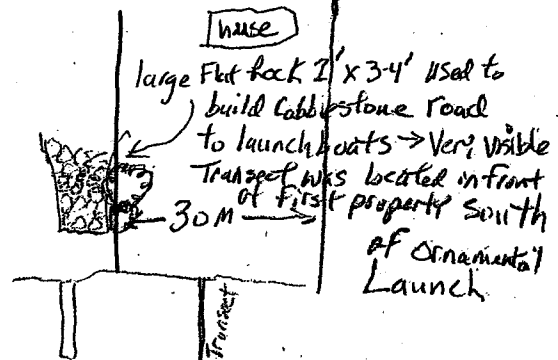 house
large Flat Rock 2' x 3-4' used to
build Cobblestone road
to launch boats → Very visible
Transect was located in front
of first property South
30M
of ornamental
Launch
Transect